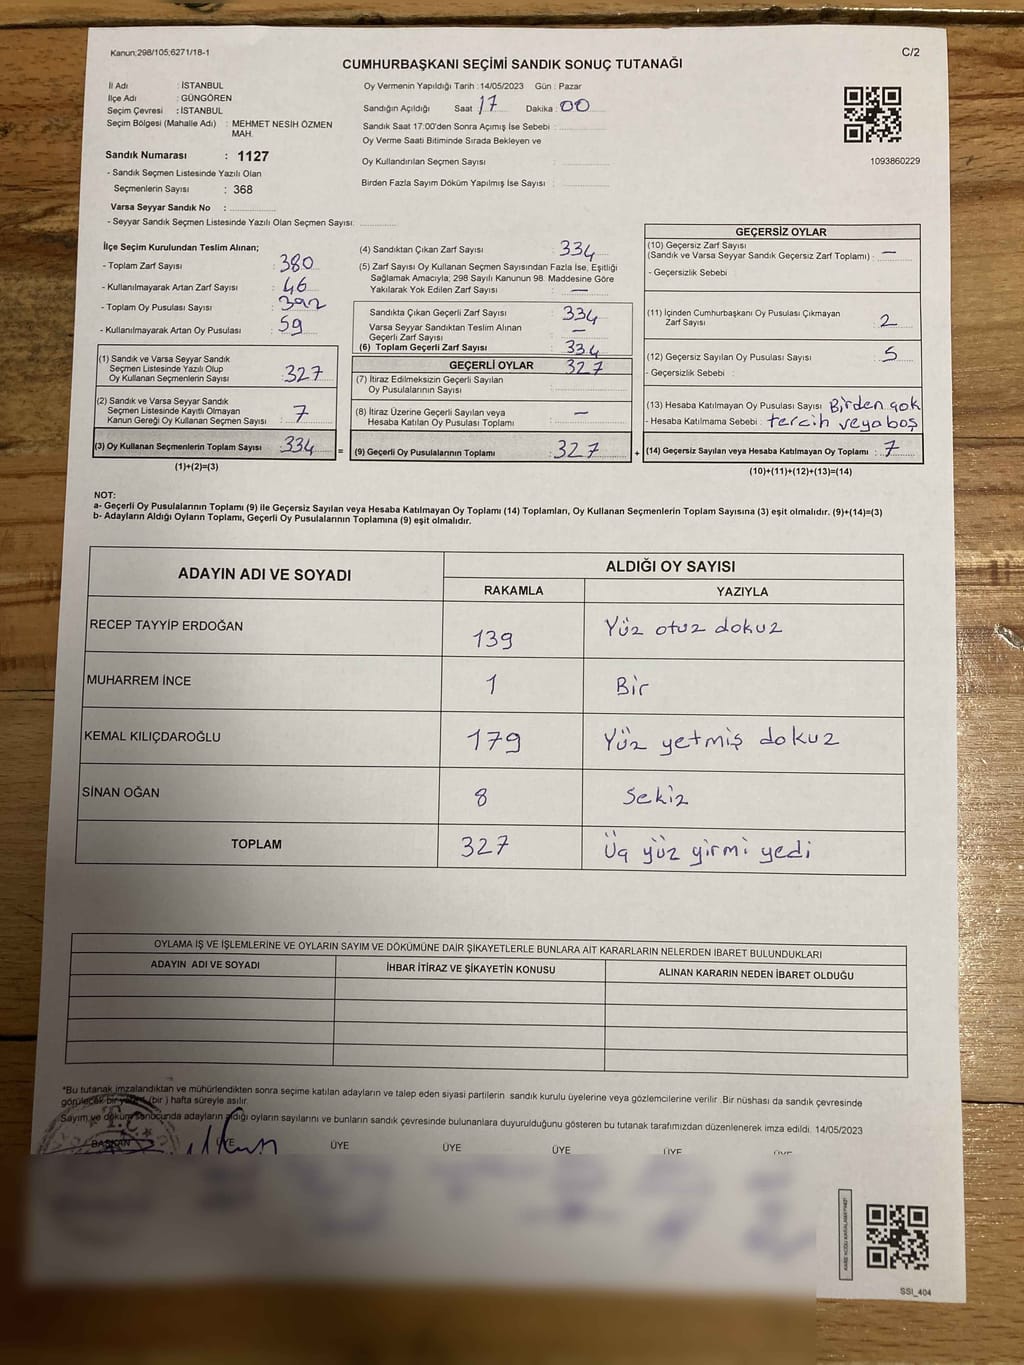 Kanun;298/105;6271/18-1
C/2
CUMHURBAŞKANI SEÇİMİ SANDIK SONUÇ TUTANAĞI
İl Adı : İSTANBUL
İlçe Adı : GÜNGÖREN
Seçim Çevresi : İSTANBUL
Seçim Bölgesi (Mahalle Adı) : MEHMET NESİH ÖZMEN
MAH.
Sandık Numarası : 1127
- Sandık Seçmen Listesinde Yazılı Olan
Seçmenlerin Sayısı : 368
Varsa Seyyar Sandık No :
- Seyyar Sandık Seçmen Listesinde Yazılı Olan Seçmen Sayısı:
Oy Vermenin Yapıldığı Tarih : 14/05/2023 Gün : Pazar
Sandığın Açıldığı Saat 17 Dakika : 00
Sandık Saat 17:00'den Sonra Açımış İse Sebebi :
Oy Verme Saati Bitiminde Sırada Bekleyen ve
Oy Kullandırılan Seçmen Sayısı :
Birden Fazla Sayım Döküm Yapılmış İse Sayısı :
1093860229
İlçe Seçim Kurulundan Teslim Alınan;
- Toplam Zarf Sayısı : 380
- Kullanılmayarak Artan Zarf Sayısı : 46
- Toplam Oy Pusulası Sayısı : 392
- Kullanılmayarak Artan Oy Pusulası : 59
(1) Sandık ve Varsa Seyyar Sandık
Seçmen Listesinde Yazılı Olup
Oy Kullanan Seçmenlerin Sayısı : 327
(2) Sandık ve Varsa Seyyar Sandık
Seçmen Listesinde Kayıtlı Olmayan
Kanun Gereği Oy Kullanan Seçmen Sayısı : 7
(3) Oy Kullanan Seçmenlerin Toplam Sayısı : 334
(1)+(2)=(3)
(4) Sandıktan Çıkan Zarf Sayısı : 334
(5) Zarf Sayısı Oy Kullanan Seçmen Sayısından Fazla İse, Eşitliği
Sağlamak Amacıyla; 298 Sayılı Kanunun 98. Maddesine Göre
Yakılarak Yok Edilen Zarf Sayısı : —
Sandıkta Çıkan Geçerli Zarf Sayısı : 334
Varsa Seyyar Sandıktan Teslim Alınan
Geçerli Zarf Sayısı : —
(6) Toplam Geçerli Zarf Sayısı : 334
GEÇERLİ OYLAR 327
(7) İtiraz Edilmeksizin Geçerli Sayılan
Oy Pusulalarının Sayısı :
(8) İtiraz Üzerine Geçerli Sayılan veya
Hesaba Katılan Oy Pusulası Toplamı : —
= (9) Geçerli Oy Pusulalarının Toplamı : 327 +
GEÇERSİZ OYLAR
(10) Geçersiz Zarf Sayısı
(Sandık ve Varsa Seyyar Sandık Geçersiz Zarf Toplamı) : —
- Geçersizlik Sebebi :
(11) İçinden Cumhurbaşkanı Oy Pusulası Çıkmayan
Zarf Sayısı : 2
(12) Geçersiz Sayılan Oy Pusulası Sayısı : 5
- Geçersizlik Sebebi :
(13) Hesaba Katılmayan Oy Pusulası Sayısı : Birden çok
- Hesaba Katılmama Sebebi : tercih veya boş
(14) Geçersiz Sayılan veya Hesaba Katılmayan Oy Toplamı : 7
(10)+(11)+(12)+(13)=(14)
NOT:
a- Geçerli Oy Pusulalarının Toplamı (9) ile Geçersiz Sayılan veya Hesaba Katılmayan Oy Toplamı (14) Toplamları, Oy Kullanan Seçmenlerin Toplam Sayısına (3) eşit olmalıdır. (9)+(14)=(3)
b- Adayların Aldığı Oyların Toplamı, Geçerli Oy Pusulalarının Toplamına (9) eşit olmalıdır.
ADAYIN ADI VE SOYADI ALDIĞI OY SAYISI
RAKAMLA YAZIYLA
RECEP TAYYİP ERDOĞAN 139 Yüz otuz dokuz
MUHARREM İNCE 1 Bir
KEMAL KILIÇDAROĞLU 179 Yüz yetmiş dokuz
SİNAN OĞAN 8 Sekiz
TOPLAM 327 Üç yüz yirmi yedi
OYLAMA İŞ VE İŞLEMLERİNE VE OYLARIN SAYIM VE DÖKÜMÜNE DAİR ŞİKAYETLERLE BUNLARA AİT KARARLARIN NELERDEN İBARET BULUNDUKLARI
ADAYIN ADI VE SOYADI İHBAR İTİRAZ VE ŞİKAYETİN KONUSU ALINAN KARARIN NEDEN İBARET OLDUĞU
*Bu tutanak imzalandıktan ve mühürlendikten sonra seçime katılan adayların ve talep eden siyasi partilerin sandık kurulu üyelerine veya gözlemcilerine verilir. Bir nüshası da sandık çevresinde
görülecek bir yere (bir) hafta süreyle asılır.
Sayım ve döküm sonucunda adayların aldığı oyların sayılarını ve bunların sandık çevresinde bulunanlara duyurulduğunu gösteren bu tutanak tarafımızdan düzenlenerek imza edildi. 14/05/2023
T.C.
BAŞKAN ÜYE ÜYE ÜYE ÜYE ÜYE ÜYE
SSI_404